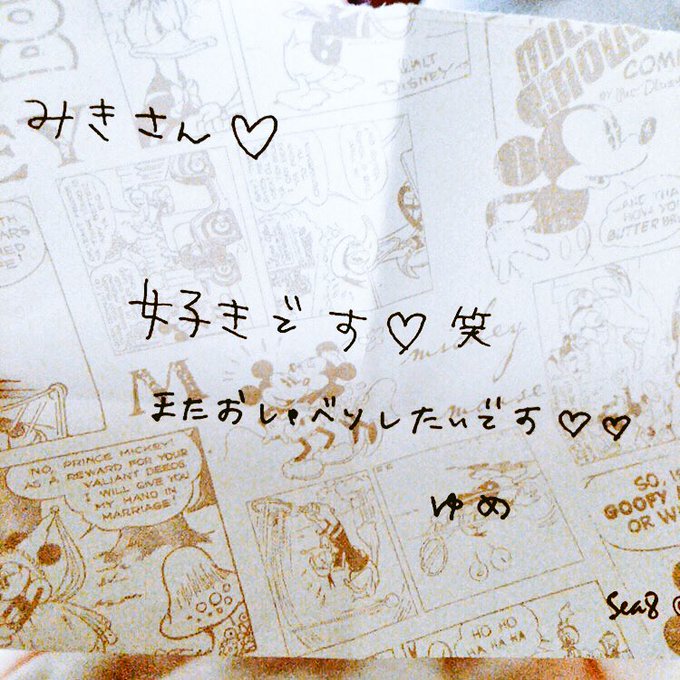 WALT
DISNEY
COMI
みきさん♡
好きです♡笑
mickey
mouse
M
またおしゃべりしたいです♡♡
NO, PRINCE MICKEY,
AS A REWARD FOR YOUR
VALIANT DEEDS
I WILL GIVE YOU
MY HAND IN
MARRIAGE!
ゆめ
GOOFY
OR W
Sea8
HO HO
HA HA HA